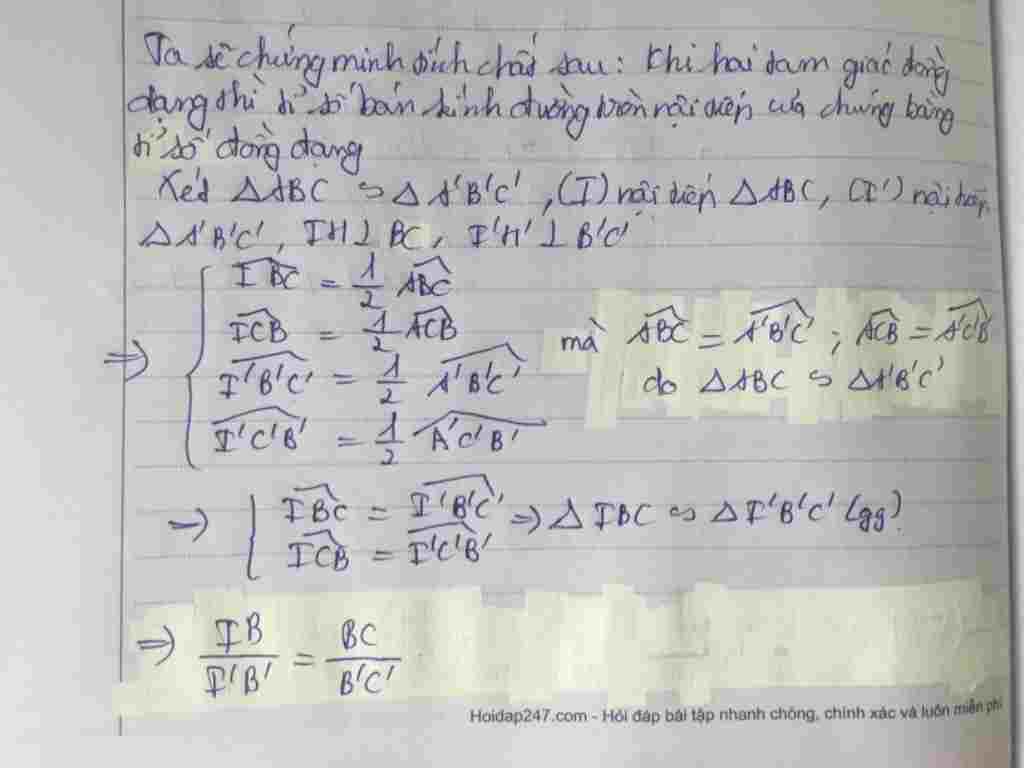 Ta sẽ chứng minh tính chất sau: Khi hai tam giác đồng
dạng thì tỉ số bán kính đường tròn nội tiếp của chúng bằng
tỉ số đồng dạng
Xét ΔABC ∽ Δ A'B'C' , (I) nội tiếp ΔABC, (I') nội tiếp
Δ A'B'C', IH ⊥ BC, I'H' ⊥ B'C'
\widehat{IBC} = \frac{1}{2} \widehat{ABC}
\widehat{ICB} = \frac{1}{2} \widehat{ACB} mà \widehat{ABC} = \widehat{A'B'C'} ; \widehat{ACB} = \widehat{A'C'B'}
⇒ \widehat{I'B'C'} = \frac{1}{2} \widehat{A'B'C'} do ΔABC ∽ ΔA'B'C'
\widehat{I'C'B'} = \frac{1}{2} \widehat{A'C'B'}
⇒ \widehat{IBC} = \widehat{I'B'C'} ⇒ Δ IBC ∽ ΔI'B'C' (gg)
\widehat{ICB} = \widehat{I'C'B'}
⇒ \frac{IB}{I'B'} = \frac{BC}{B'C'}
Hoidap247.com - Hỏi đáp bài tập nhanh chóng, chính xác và luôn miễn phí